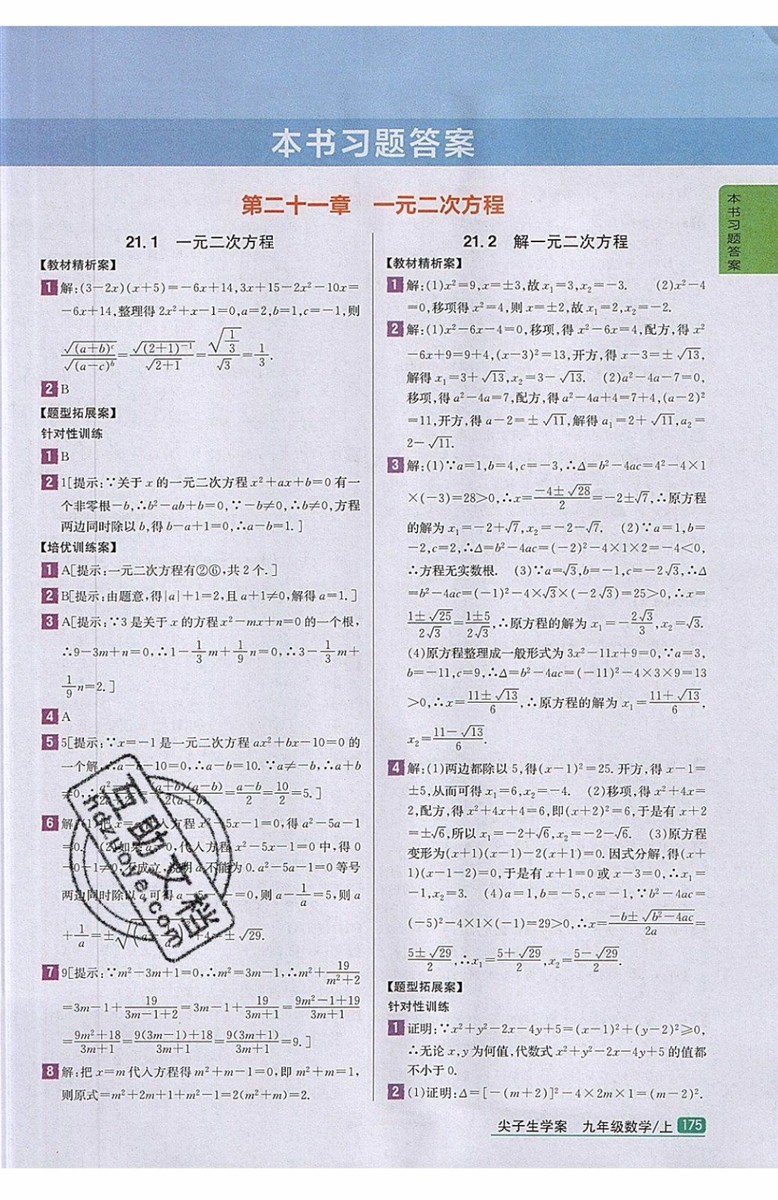 本书习题答案
第二十一章 一元二次方程
本书习题答案
21.1 一元二次方程
【教材精析案】
1 解:(3-2x)(x+5)=-6x+14,3x+15-2x²-10x=
-6x+14,整理得2x²+x-1=0,a=2,b=1,c=-1,则
√((a+b)^c)/√((a-c)^b)=√((2+1)^-1)/√(2+1)=√(1/3)/√3=1/3.
2 B
【题型拓展案】
针对性训练
1 B
2 1[提示:∵关于x的一元二次方程x²+ax+b=0有一
个非零根-b,∴b²-ab+b=0,∵-b≠0,∴b≠0,方程
两边同时除以b,得b-a+1=0,∴a-b=1.]
【培优训练案】
1 A[提示:一元二次方程有②⑥,共2个.]
2 B[提示:由题意,得|a|+1=2,且a+1≠0,解得a=1.]
3 A[提示:∵3是关于x的方程x²-mx+n=0的一个根,
∴9-3m+n=0,∴1-1/3m+1/9n=0,∴3-1/3m+
1/9n=2.]
4 A
5 5[提示:∵x=-1是一元二次方程ax²+bx-10=0的
一个解,∴a-b-10=0,∴a-b=10.∵a≠-b,∴a+b
≠0,∴(a+b)(a-b)/2(a+b)=(a-b)/2=10/2=5.]
6 解:(1)把x=a代入方程x²-5x-1=0,得a²-5a-1
=0. (2)如果a=0,代入方程x²-5x-1=0中,得0
-0-1=0,不成立,说明a不能为0.a²-5a-1=0等号
两边同时除以a可得a-5-1/a=0,则a-1/a=5,则a
+1/a=±√ +4=±√29.
7 9[提示:∵m²-3m+1=0,∴m²=3m-1,∴m²+19/(m²+2)
=3m-1+19/(3m-1+2)=3m-1+19/(3m+1)=(9m²-1+19)/(3m+1)
=(9m²+18)/(3m+1)=(9(3m-1)+18)/(3m+1)=(9(3m+1))/(3m+1)=9.]
8 解:把x=m代入方程得m²+m-1=0,即m²+m=1,
则原式=m²+2m+1+m²-1=2(m²+m)=2.
21.2 解一元二次方程
【教材精析案】
1 解:(1)x²=9,x=±3,故x₁=3,x₂=-3. (2)x²-4
=0,移项得x²=4,则x=±2,故x₁=2,x₂=-2.
2 解:(1)x²-6x-4=0,移项,得x²-6x=4,配方,得x²
-6x+9=9+4,(x-3)²=13,开方,得x-3=±√13,
解得x₁=3+√13,x₂=3-√13. (2)a²-4a-7=0,
移项,得a²-4a=7,配方,得a²-4a+4=7+4,(a-2)²
=11,开方,得a-2=±√11,解得a₁=2+√11,a₂=
2-√11.
3 解:(1)∵a=1,b=4,c=-3,∴Δ=b²-4ac=4²-4×1
×(-3)=28>0,∴x=(-4±√28)/2=-2±√7,∴原方程
的解为x₁=-2+√7,x₂=-2-√7. (2)∵a=1,b=
-2,c=2,∴Δ=b²-4ac=(-2)²-4×1×2=-4<0,
∴方程无实数根. (3)∵a=√3,b=-1,c=-2√3,∴Δ
=b²-4ac=(-1)²-4×√3×(-2√3)=25>0,∴x=
(1±√25)/2√3=(1±5)/2√3,∴原方程的解为x₁=-2√3/3,x₂=√3.
(4)原方程整理成一般形式为3x²-11x+9=0,∵a=3,
b=-11,c=9,∴Δ=b²-4ac=(-11)²-4×3×9=13
>0,∴x=(11±√13)/6,∴原方程的解为x₁=(11+√13)/6,
x₂=(11-√13)/6.
4 解:(1)两边都除以5,得(x-1)²=25.开方,得x-1=
±5,从而可得x₁=6,x₂=-4. (2)移项,得x²+4x=
2,配方,得x²+4x+4=6,即(x+2)²=6,于是有x+2
=±√6,所以x₁=-2+√6,x₂=-2-√6. (3)原方程
变形为(x+1)(x-1)-2(x+1)=0.因式分解,得(x+
1)(x-1-2)=0,于是有x+1=0或x-3=0,∴x₁=
-1,x₂=3. (4)a=1,b=-5,c=-1,∵b²-4ac=
(-5)²-4×1×(-1)=29>0,∴x=(-b±√(b²-4ac))/2a=
(5±√29)/2,∴x₁=(5+√29)/2,x₂=(5-√29)/2.
【题型拓展案】
针对性训练
1 证明:∵x²+y²-2x-4y+5=(x-1)²+(y-2)²≥0,
∴无论x,y为何值,代数式x²+y²-2x-4y+5的值都
不小于0.
2 (1)证明:Δ=[-(m+2)]²-4×2m×1=(m-2)².
互助文档
hdzuoye.com
尖子生学案 九年级数学/上 175